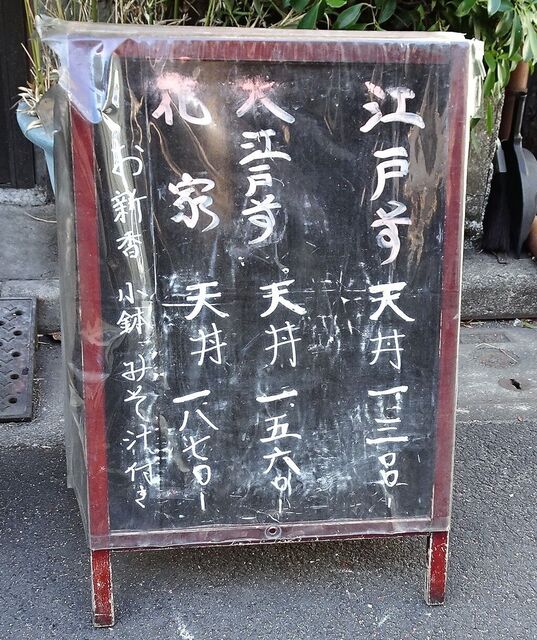 江戸前 天丼 一三〇〇-
大江戸前 天丼 一五六〇-
花家 天丼 一八七〇-
お新香 小鉢 みそ汁付き